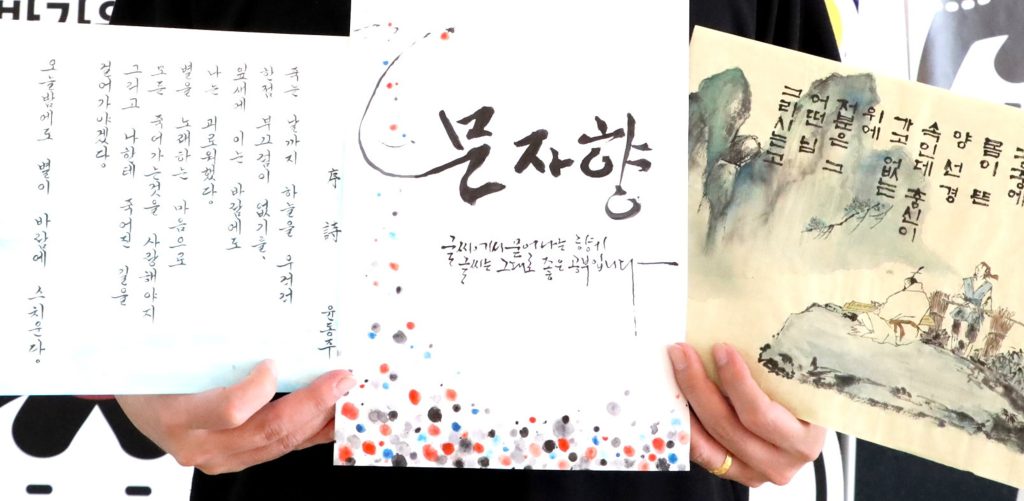 序詩
윤동주
죽는 날까지 하늘을 우러러
한점 부끄럼이 없기를
잎새에 이는 바람에도
나는 괴로워했다
별을 노래하는 마음으로
모든 죽어가는것을 사랑해야지
그리고 나한테 주어진 길을
걸어가야겠다
오늘밤에도 별이 바람에 스치운다
문자향
글씨에서 묻어나는 향기
글씨는 그대로 좋은 공부입니다
몸이 뜬
양 선경
속인데 충신이
가고 없는
위에
저분은 그
어떤 님
그리시는고